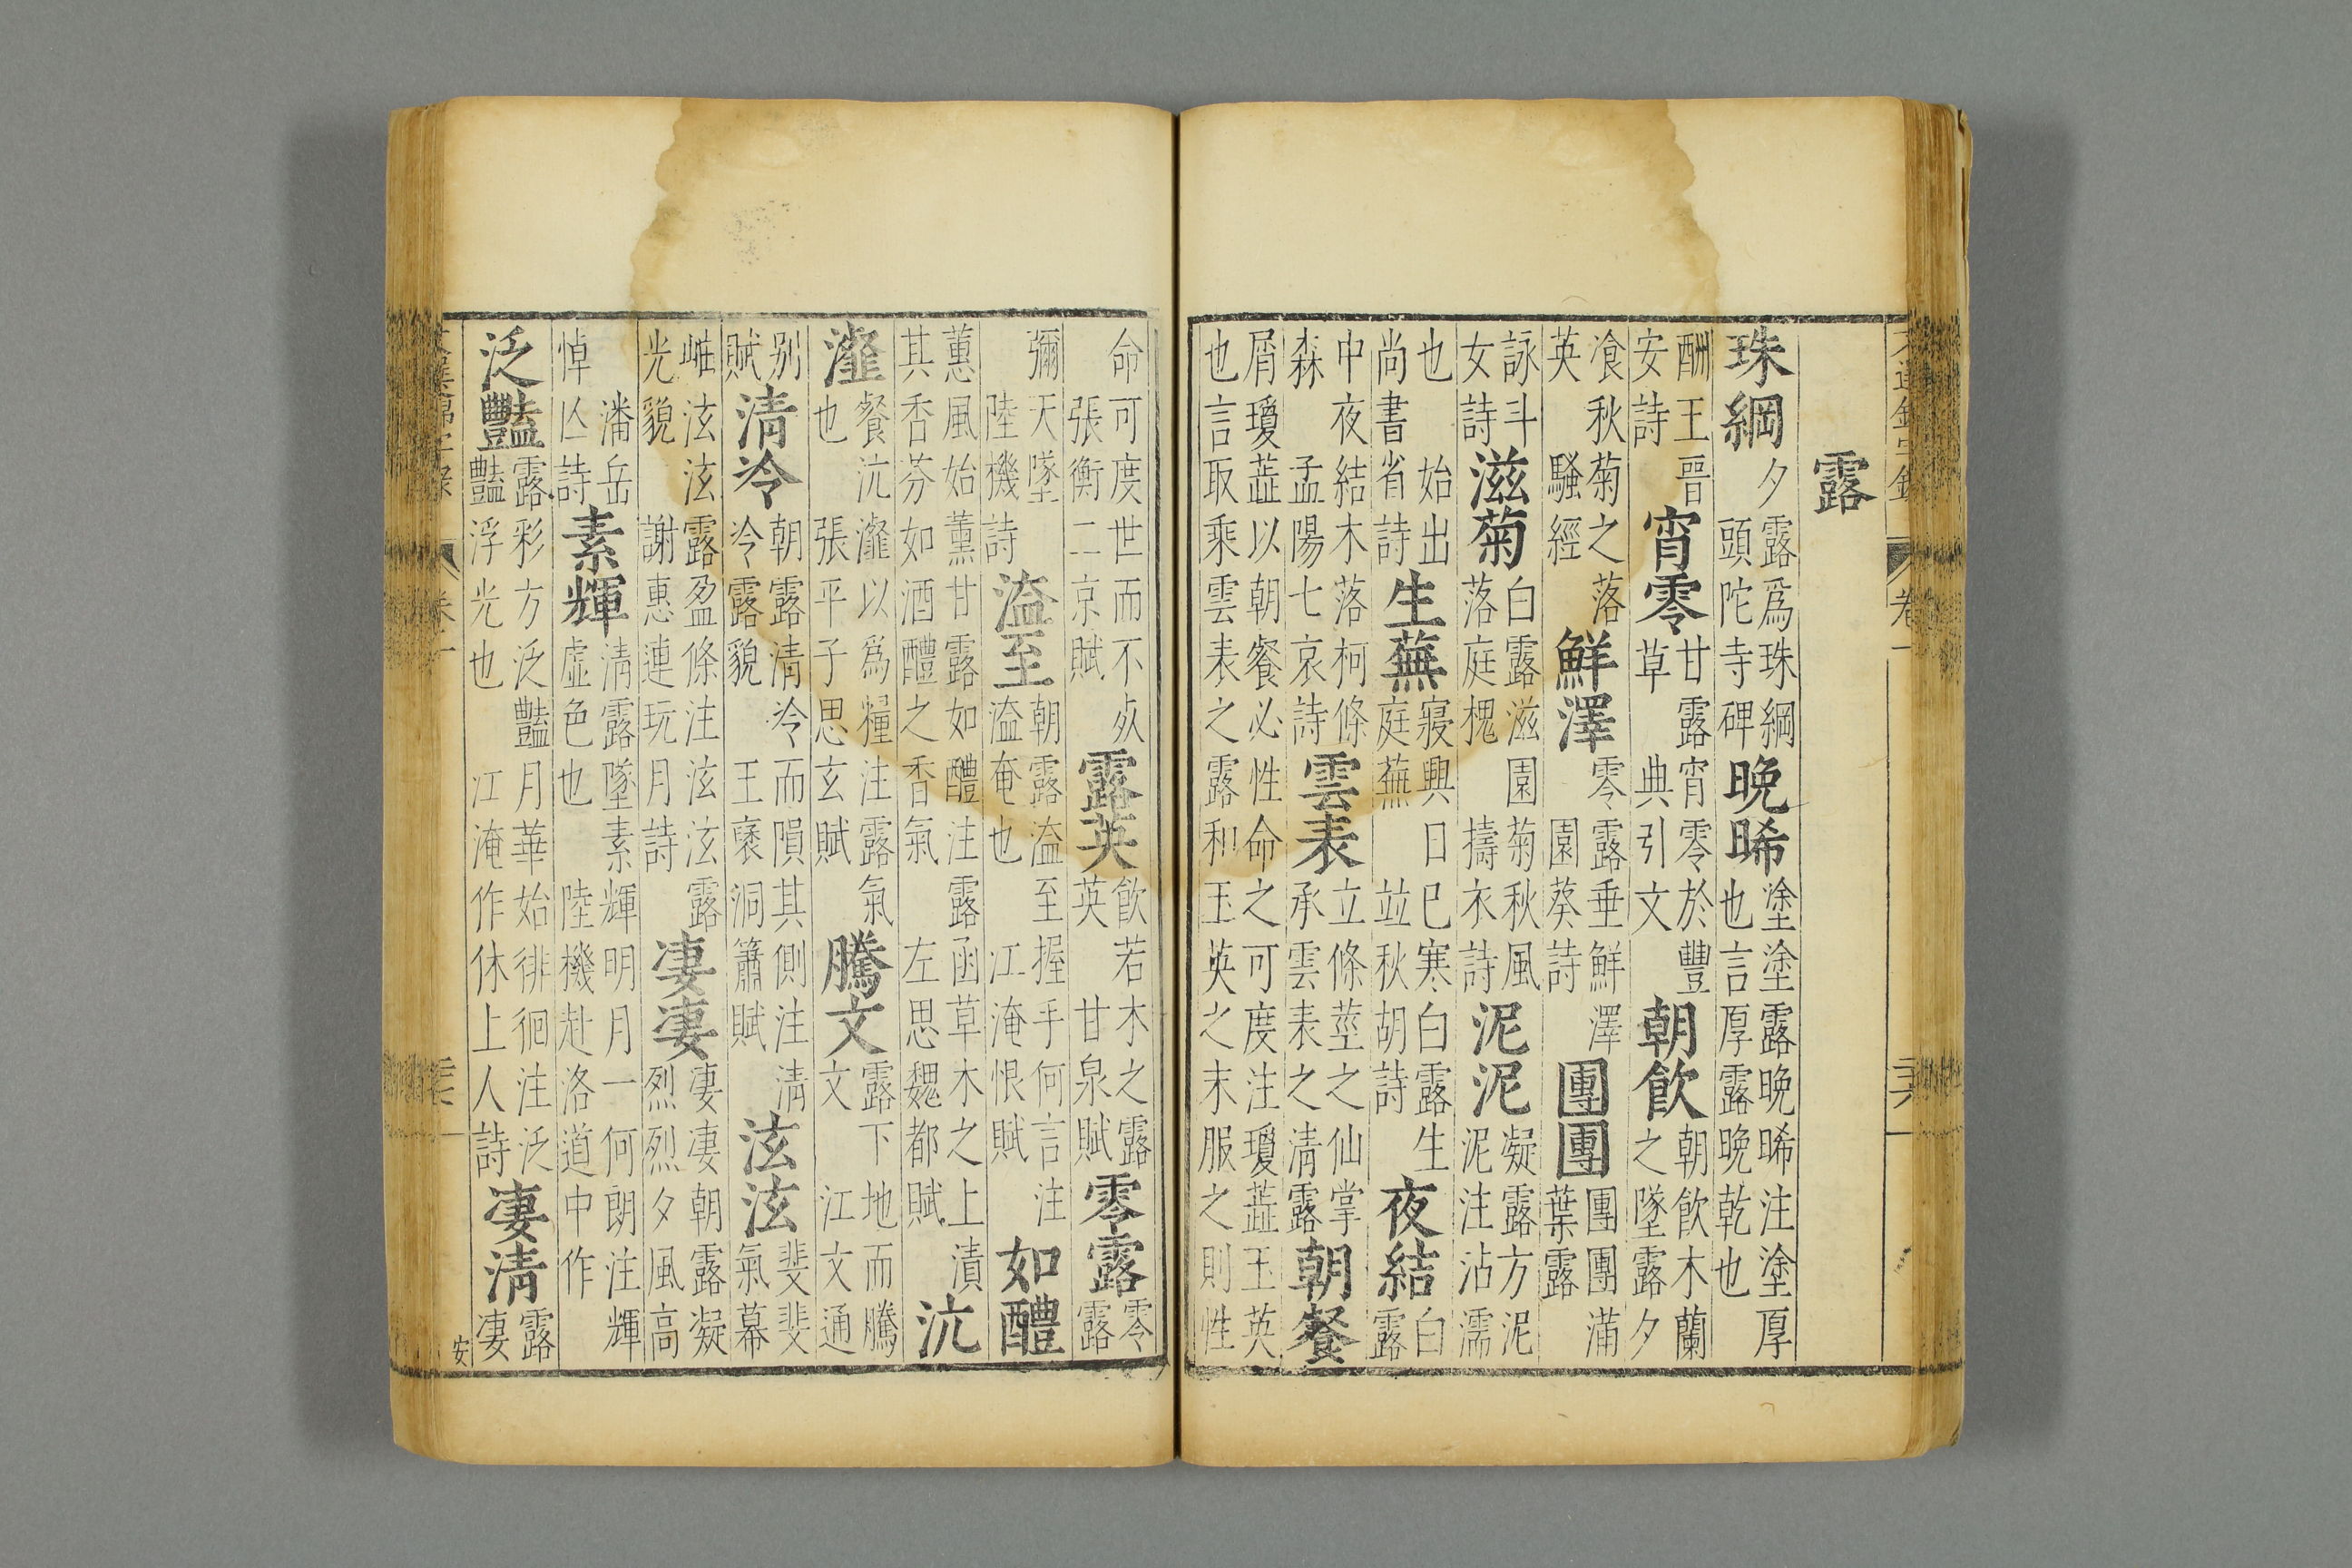 文選錦字錄 卷一 二六
露
珠綱 夕露爲珠綱 頭陀寺碑 晚晞 塗塗露晚晞注塗厚也言厚露晚乾也
酬王晉安詩 宵零 甘露宵零於豐草 典引文 朝飲 朝飲木蘭之墜露夕
飡秋菊之落英 騷經 鮮澤 零露垂鮮澤 園葵詩 團團 團團滿葉露
詠斗女詩 滋菊 白露滋園菊秋風落庭槐 擣衣詩 泥泥 凝露方泥泥注沾濡
也 始出尚書省詩 生蕪 寢興日已寒白露生庭蕪 竝秋胡詩 夜結 白露
中夜結木落柯條森 孟陽七哀詩 雲表 立條莖之仙掌承雲表之清露 朝餐
屑瓊蘂以朝餐必性命之可度注瓊蘂玉英也言取乘雲表之露和玉英之末服之則性
命可度世而不㱙 張衡二京賦 露英 飲若木之露英 甘泉賦 零露 零露
彌天墜 陸機詩 溘至 朝露溘至握手何言注溘奄也 江淹恨賦 如醴
蕙風始薰甘露如醴注露函草木之上漬其香芬如酒醴之香氣 左思魏都賦 沆
瀣 餐沆瀣以爲糧注露氣也 張平子思玄賦 騰文 露下地而騰文 江文通
别賦 清冷 朝露清冷而隕其側注清冷露貌 王襃洞簫賦 泫泫 斐斐氣幕
岫泫泫露盈條注泫泫露光貌 謝惠連玩月詩 凄凄 凄凄朝露凝烈烈夕風高
潘岳悼亾詩 素輝 清露墜素輝明月一何朗注輝虚色也 陸機赴洛道中作
泛豔 露彩方泛豔月華始徘徊注泛豔浮光也 江淹作休上人詩 凄清 露凄
安